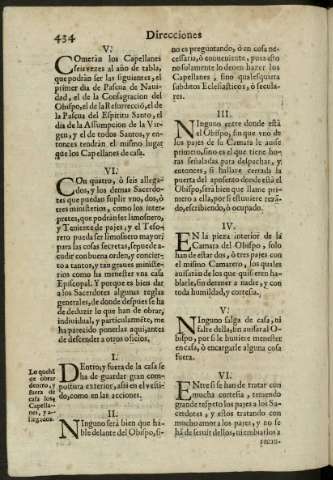 434
Direcciones
V.
Comeràn los Capellanes
seis vezes al año de tabla,
que podràn ser las siguientes, el
primer dia de Pascua de Navi-
dad, el de la Consagracion del
Obispo, el de la Resurrecció, el de
la Pascua del Espiritu Santo, el
dia de la Assumpcion de la Vir-
gen, y el de todos Santos, y en-
tonces tendràn el mismo lugar
que los Capellanes de casa.
VI.
Con quatro, ò seis allega-
dos, y los demas Sacerdo-
tes que puedan suplir vno, dos, ò
tres ministerios, como los inter-
pretes, que podràn ser limosnero,
y Teniente de pajes, y el Teso-
rero pueda ser limosnero mayor;
para las cosas secretas, se puede a-
codir con buena orden, y concier-
to a tantos, y tan graues ministe-
rios como ha menester vna casa
Episcopal. Y porque es bien dar
a los Sacerdotes algunas reglas
generales, de donde despues se ha
de deduzir lo que han de obrar,
indiuidual, y particularmẽte, me
ha parecido ponerlas aqui, antes
de descender a otros oficios.
I.
Dentro, y fuera de la casa se
ha de guardar gran com-
postura exterior, assi en el vesti-
do, como en las acciones.
II.
Ninguno serà bien que ha-
ble delante del Obispo, si-
Lo que hã
de obrar
dentro, y
fuera de
casa los
Capella-
nes, y a-
llegados.
no es preguntando, ò en cosa ne-
cessaria, ò conueniente, pues esto
no solamente lo deuen hazer los
Capellanes, sino qualesquiera
subditos Eclesiasticos, ò secula-
res.
III.
Ninguno entre donde està
el Obispo, sin que vno de
los pajes de su Camara le auise
primero, sino es al que tiene ho-
ras señaladas para despachar, y
entonces, si hallare cerrada la
puerta del aposento donde està el
Obispo, serà bien que llame pri-
mero a ella, por si estuuiere rezã-
do, escribiendo, ò ocupado.
IV.
En la pieza interior de la
Camara del Obispo, solo
han de estar dos, ò tres pajes con
el mismo Camarero, los quales
auisaràn de los que quisieren ha-
blarle, sin detener a nadie, y con
toda humildad, y cortesia.
V.
Ninguno salga de casa, ni
falte della, sin auisar al O-
bispo, por si le huuiere menester
en casa, ò encargarle alguna cosa
fuera.
VI.
Entre si se han de tratar con
mucha cortesia, teniendo
grande respeto los pajes a los Sa-
cerdotes, y estos tratando con
mucho amor a los pajes, y no se
hã de seruir dellos, ni embiarlos a